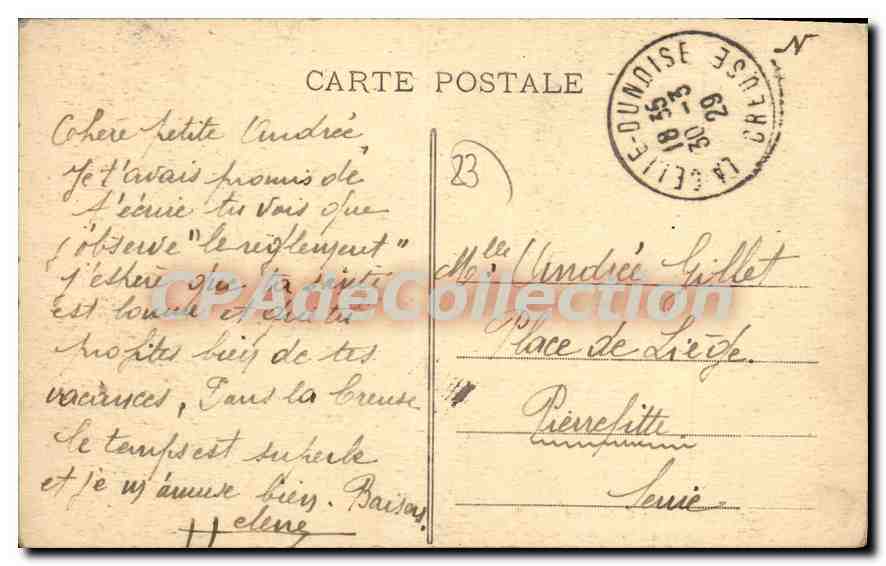 CARTE POSTALE
N
LA CELLE-DUNOISE CREUSE
18 35
30 -3
29
23
Chère petite Andrée
Je t'avais promis de
t'écrire tu vois que
j'observe "le règlement"
j'espère que ta santé
est bonne et que tu
profites bien de tes
vacances, Dans la Creuse
le temps est superbe
et je m'amuse bien. Baisers.
Helene
Mlle Andrée Gillet
Place de Liège.
Pierrefitte
Seine
CPAdeCollection